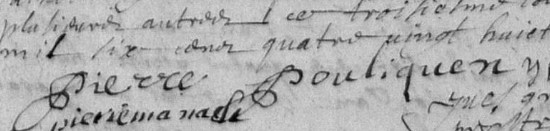 plusieurs autres ce troisiesme
mil six cent quatre vingt huict
pierre pouliquen
pierre manach
yves